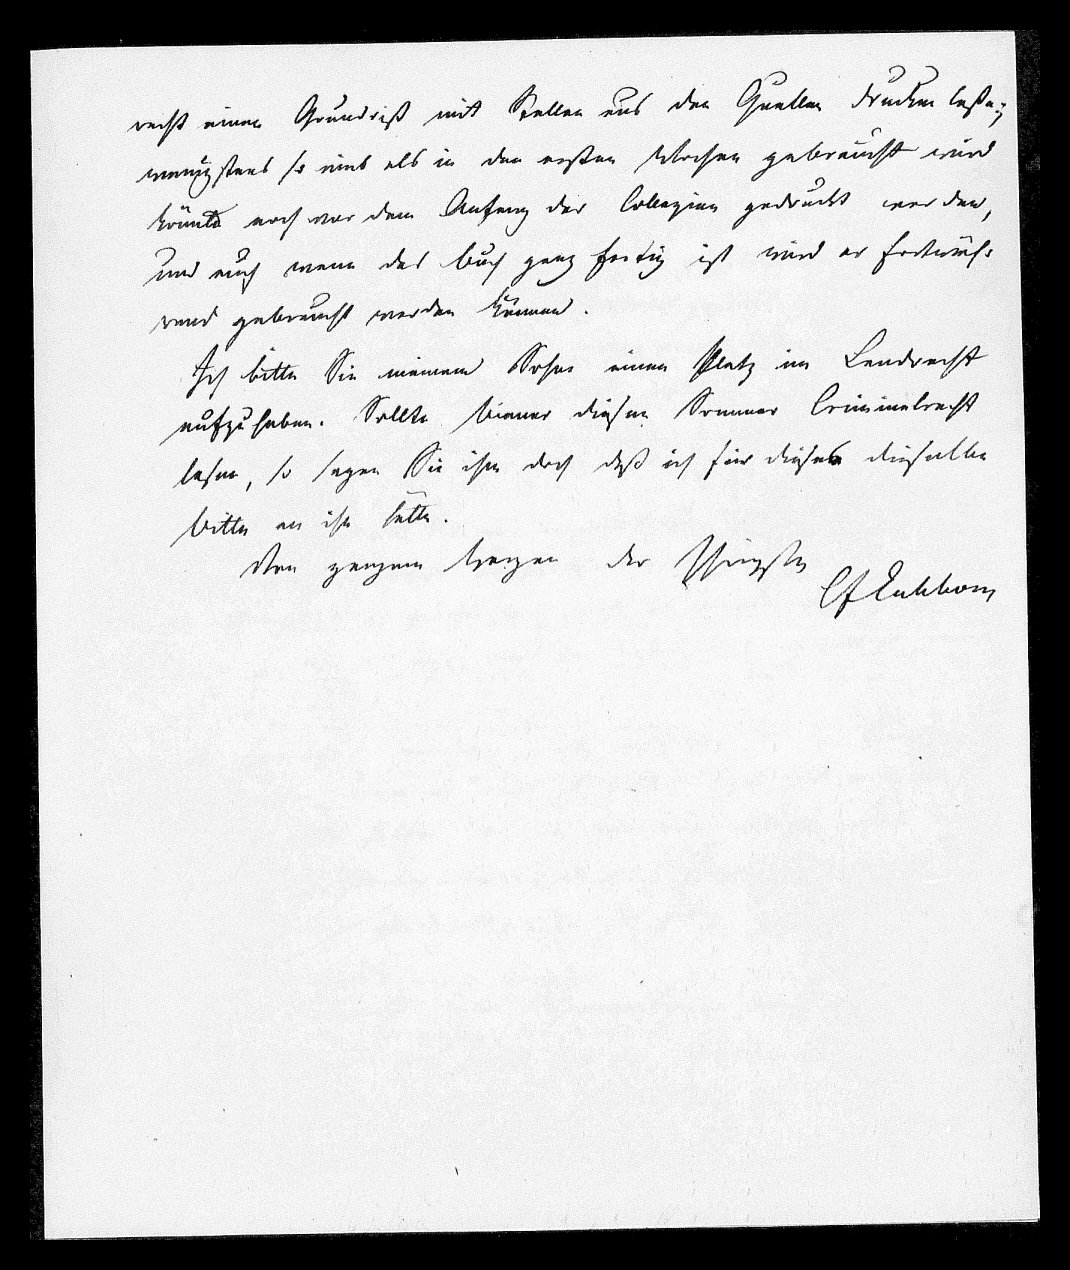 recht einen Grundriß mit Stellen aus den Quellen drucken laßen;
wenigstens so viel als in den ersten Wochen gebraucht wird
könnte noch vor dem Anfang der Collegien gedruckt werden,
und auch wenn das Buch ganz fertig ist wird er fortwäh-
rend gebraucht werden können.
Ich bitte Sie meinem Sohne einen Platz im Landrecht
aufzuheben. Sollte Biener diesen Sommer Criminalrecht
lesen, so sagen Sie ihm doch daß ich für dieses dieselbe
Bitte an ihn hätte.
Von ganzem Herzen der Ihrigste
CfEichhorn